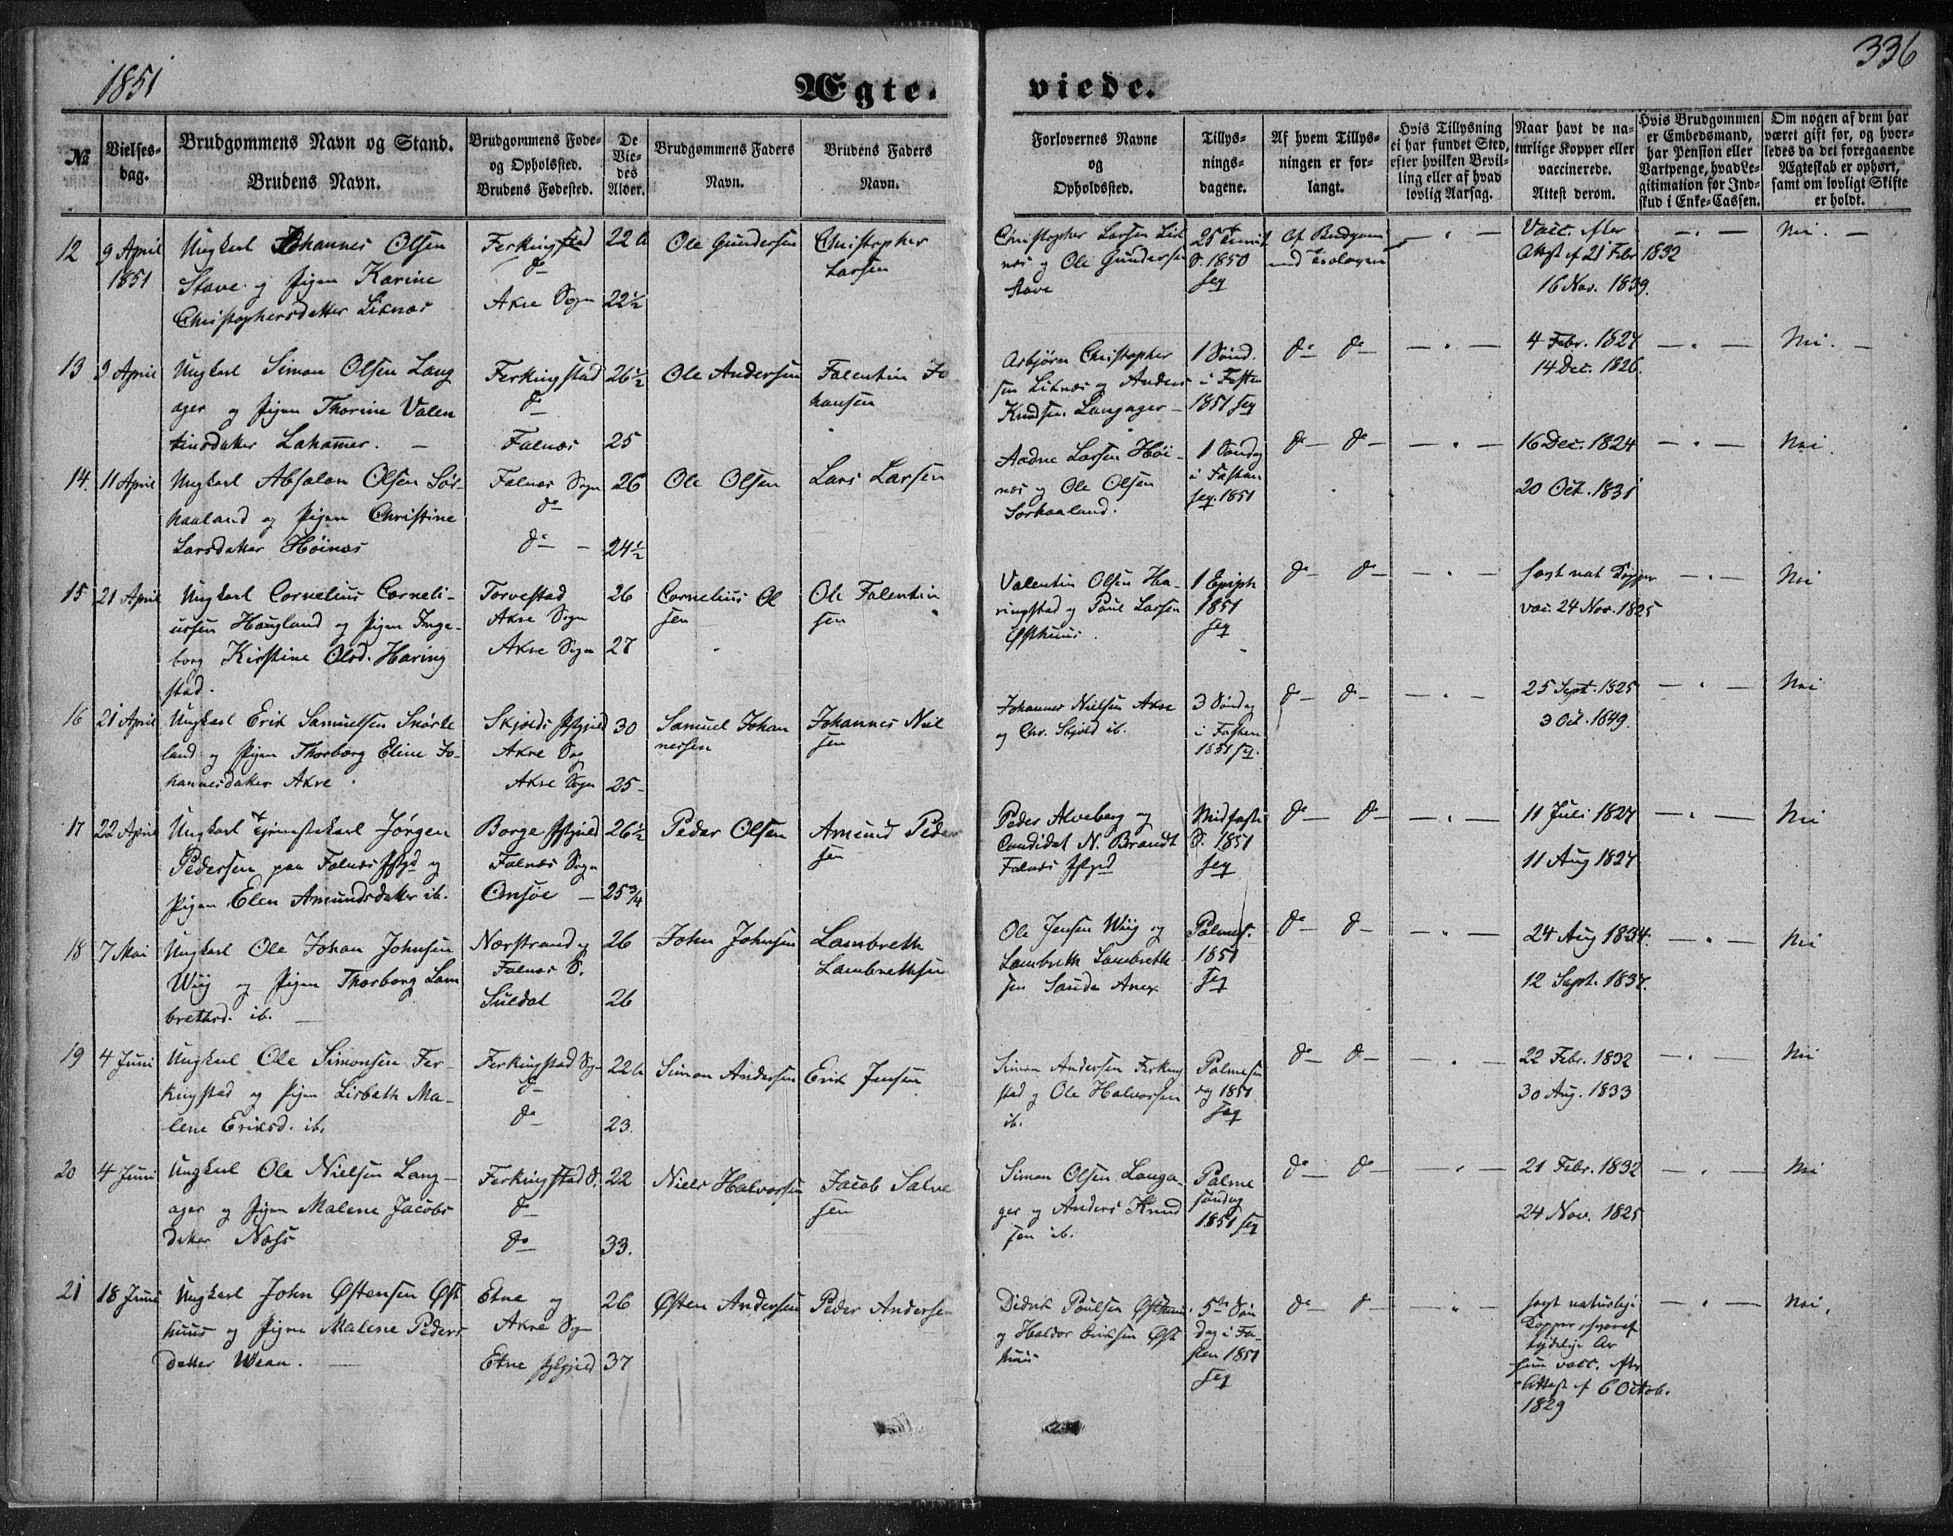 1851
336
Ægte-
viede.
№
Vielses-
dag.
Brudgommens Navn og Stand.
Brudens Navn.
Brudgommens Føde-
og Opholdssted.
Brudens Fødested.
De
Vie-
des
Alder.
Brudgommens Faders
Navn.
Brudens Faders
Navn.
Forlovernes Navne
og
Opholdssted.
Tillys-
nings-
dagene.
Af hvem Tillys-
ningen er for-
langt.
Hvis Tillysning
ei har fundet Sted,
efter hvilken Bevil-
ling eller af hvad
lovlig Aarsag.
Naar havt de na-
turlige Kopper eller
vaccinerede.
Attest derom.
Hvis Brudgommen
er Embedsmand,
har Pension eller
Vartpenge, hvad Le-
gitimation for Ind-
skud i Enke-Cassen.
Om nogen af dem har
været gift før, og hvor-
ledes da det foregaaende
Ægteskab er ophørt,
samt om lovligt Skifte
er holdt.
12
9 April
1851
Ungkarl Johannes Olsen
Stave og Pigen Karine
Christophersdatter Liknæs
Ferkingstad
do
Akre Sogn
22
22½
Ole Gundersen
Christopher
Larsen
Christopher Larsen Lik
næs og Ole Gundersen
Stave
S. 1850
seq
Vacc. efter
Attest af 21 Febr 1832
16 Nov. 1839.
Nei
13
9 April
Ungkarl Simon Olsen Lang
ager og Pigen Thorine Valen
tinsdatter Lahammer.
Ferkingstad
do
Falnæs
26½
25
Ole Andersen
Falentin Jo
hansen
Asbjørn Christopher
sen Liknæs og Anders
Knudsen Langager
1 Sønd.
i Fasten
1851 seq
do do
4 Febr. 1827
14 Dec. 1826.
Nei.
14.
11 April
Ungkarl Absalon Olsen Sør-
haaland og Pigen Christine
Larsdatter Høinæs
Falnæs Sogn
do
do
26
24½
Ole Olsen
Lars Larsen
Aadne Larsen Høi-
næs og Ole Olsen
Sørhaaland.
1 Søndag
i Fasten
seq. 1851
do do
16 Dec. 1824
20 Oct. 1831
Nei.
15
21 April
Ungkarl Cornelius Corneli-
ussen Haugland og Pigen Inge-
borg Kirstine Olsd. Haring
stad.
Torvestad
Akre Sogn
Akre Sogn
26
27
Cornelius Ol
sen
Ole Falentin
sen
Valentin Olsen Ha-
ringstad og Poul Larsen
Østhuus.
1 Epiph
1851
seq
do do
havt nat Kopper
vac. 24 Nov. 1825
Nei
16
21 April
Ungkarl Erik Samuelsen Skørte
land og Pigen Thorborg Eline Jo-
hannesdatter Akre
Akre Sog
Akre Sogn
30
25
Samuel Johan
nessen
Johannes Niel
sen
Johannes Nielsen Akre
og Chr. Skjold ib.
3 Søndag
i Fasten
1851 seq.
do do
25 Sept. 1825
3 Oct. 1849.
Nei
17
22 April
Ungkarl Tjenestekarl Jørgen
Pedersen paa Falnæs Pstgd og
Pigen Elen Amundsdatter ib.
Falnæs Sogn
Omsøe
26½
25¾
Peder Olsen
Amund Peder
sen
Peder Alveberg og
Candidat N. Brandt
Falnæs Pstgd
Midfaste
S. 1851
seq
do do
11 Juli 1827
11 Aug 1827
Nei
18
7 Mai
Ungkarl Ole Johan Johnsen
Wiig og Pigen Thorborg Lam
brethsd. ib.
Nærstrand og
Falnæs S.
Suldal
26
26
John Johnsen
Lambreth
Lambrethsen
Ole Jensen Wiig og
Lambreth Lambreth
sen Sande Anex
Palmes.
1851
seq
do do
24 Aug 1834.
12 Sept. 1837.
Nei
19
4 Juni
Ungkarl Ole Simonsen Fer-
kingstad og Pigen Lisbeth Ma-
lene Eriksd. ib.
Ferkingstad Sogn
do
do
22
23.
Simon Andersen
Erik Jensen
Simon Andersen Ferking
stad og Ole Halvorsen
ib.
Palmesøn
dag 1851
seq
do do
22 Febr. 1832
30 Aug. 1833
Nei
20
4 Juni
Ungkarl Ole Nielsen Lang-
ager og Pigen Malene Jacobs
datter Næss
Ferkingstad S.
do
do
22
33.
Niels Halvorsen
Jacob Salve
sen
Simon Olsen Langa-
ger og Anders Knud
sen ib.
Palme
søndag
1851 seq
do do
21 Febr. 1832
24 Nov. 1825
Nei
21
18 Juni
Ungkarl John Østensen Øst
huus og Pigen Malene Peders
datter Wean.
Etne og
Akre Sogn
Etne
26
37
Østen Andersen
Peder Andersen
Didrik Poulsen Østhuus
og Haldor Eriksen Øst
huus
5te Søn
dag i Fa-
sten 1851
seq
do do
havt naturlige
Kopper hvoraf
tydelige Ar
hun vacc. efter
Attest af 6 Octob.
1829
Nei.